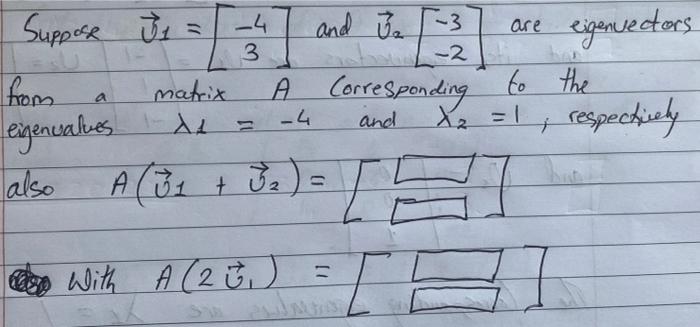 Suppose v⃗1 = [-4 3] and v⃗2 [-3 -2] are eigenvectors
from a matrix A Corresponding to the
eigenvalues λ1 = -4 and λ2 = 1, respectively
also A(v⃗1 + v⃗2) = [ ]
With A(2v⃗1) = [ ]